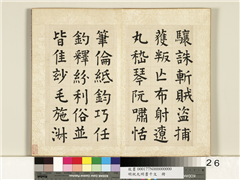 驤誅斬賊盜捕
獲叛亡布射遼
丸嵇琴阮嘯恬
筆倫紙鈞巧任
釣釋紛利俗並
皆佳玅毛施淑
26